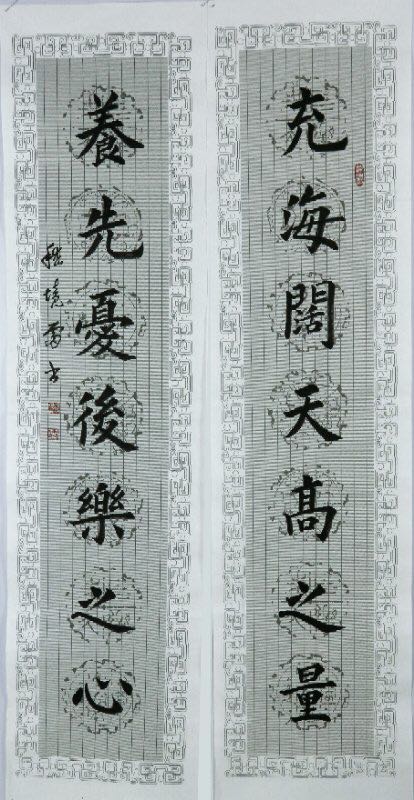 充海闊天高之量
養先憂後樂之心